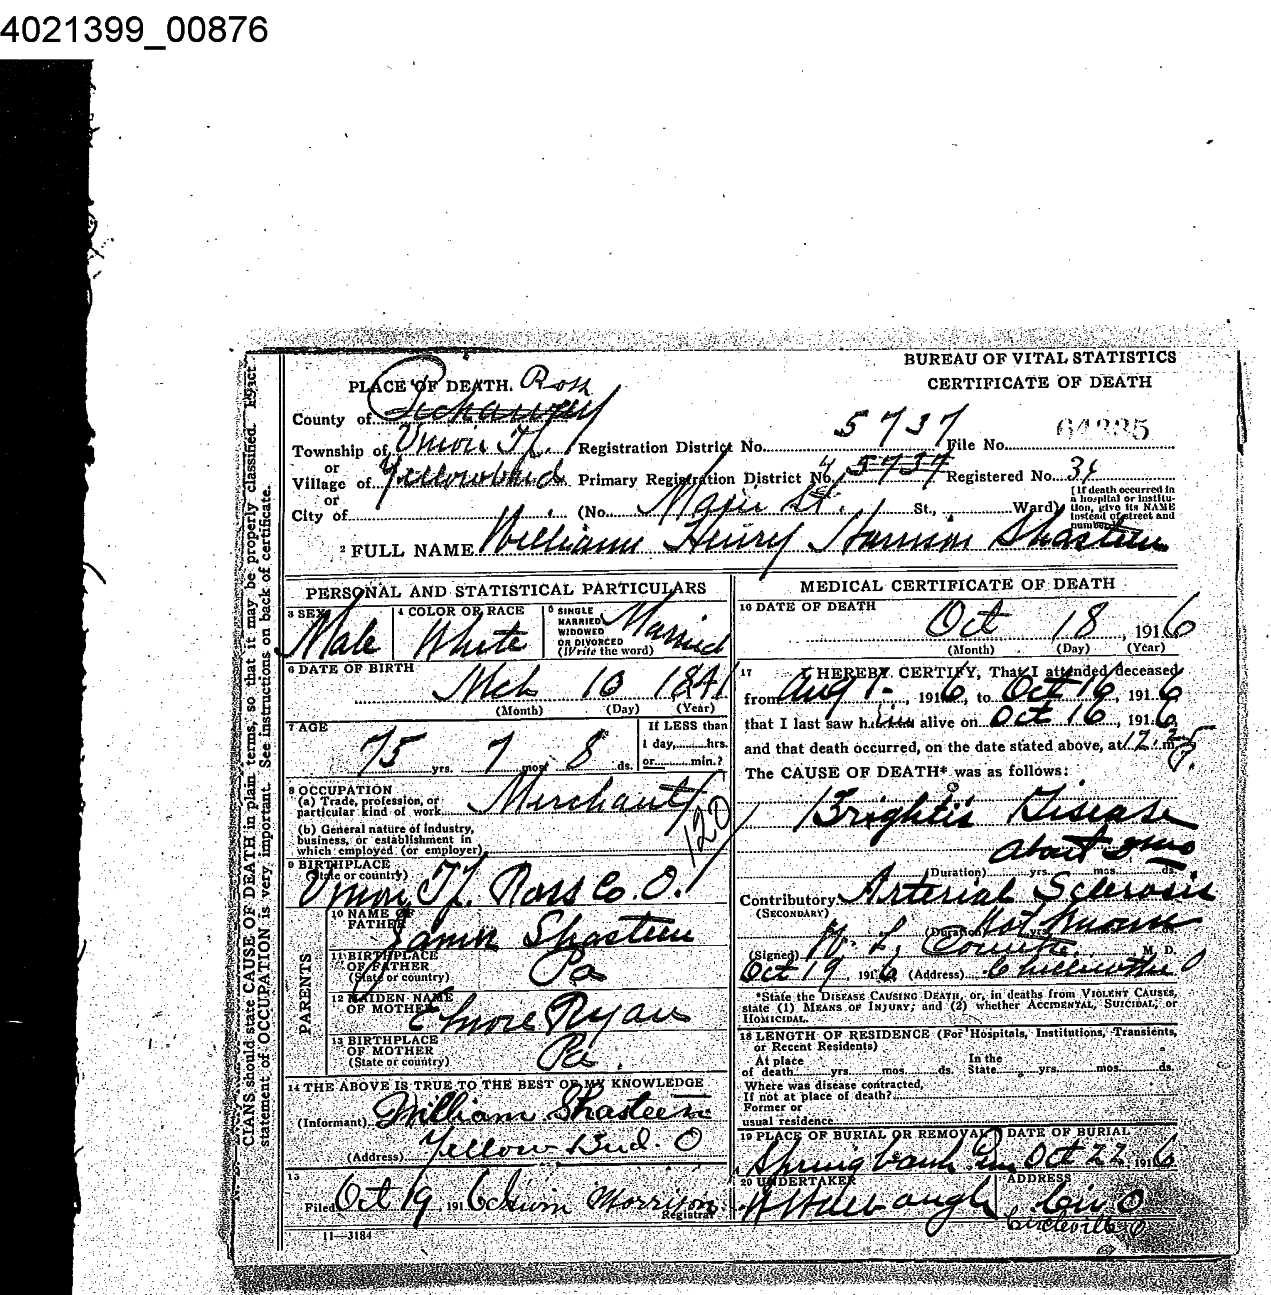 4021399_00876
BUREAU OF VITAL STATISTICS
CERTIFICATE OF DEATH
PLACE OF DEATH. Ross
County of Pickaway
Township of Union Tp. Registration District No. 5737 File No. 64335
or
Village of Yellowbud Primary Registration District No. 5737 Registered No. 34
or
City of (No. Main St. St., Ward)
[If death occurred in a hospital or institution, give its NAME instead of street and number.]
2 FULL NAME William Henry Harrison Shasteen
PERSONAL AND STATISTICAL PARTICULARS
3 SEX Male
4 COLOR OR RACE White
5 SINGLE MARRIED WIDOWED OR DIVORCED (Write the word) Married
6 DATE OF BIRTH Mch 10 1841
(Month) (Day) (Year)
7 AGE 75 yrs. 7 mos. 8 ds.
If LESS than 1 day, hrs. or min.?
8 OCCUPATION
(a) Trade, profession, or particular kind of work Merchant
(b) General nature of industry, business, or establishment in which employed (or employer)
120
9 BIRTHPLACE (State or country) Union Tp. Ross Co. O.
PARENTS
10 NAME OF FATHER Shasteen
11 BIRTHPLACE OF FATHER (State or country) Pa
12 MAIDEN NAME OF MOTHER Ryan
13 BIRTHPLACE OF MOTHER (State or country) Pa.
14 THE ABOVE IS TRUE TO THE BEST OF MY KNOWLEDGE
(Informant) William Shasteen
(Address) Yellow Bud. O
15
Filed Oct 19 1916 Morrison Registrar
11—3184
MEDICAL CERTIFICATE OF DEATH
16 DATE OF DEATH
Oct 18, 1916
(Month) (Day) (Year)
17 I HEREBY CERTIFY, That I attended deceased
from Aug 1, 1916, to Oct 16, 1916
that I last saw him alive on Oct 16, 1916,
and that death occurred, on the date stated above, at 12 m.
The CAUSE OF DEATH* was as follows:
Bright's Disease
About
(Duration) yrs. mos. ds.
Contributory Arterial Sclerosis
(SECONDARY)
(Duration) Not Known
(Signed) M. D.
Oct 19, 1916 (Address) Chillicothe O
*State the DISEASE CAUSING DEATH, or, in deaths from VIOLENT CAUSES,
state (1) MEANS OF INJURY; and (2) whether ACCIDENTAL, SUICIDAL, or
HOMICIDAL.
18 LENGTH OF RESIDENCE (For Hospitals, Institutions, Transients,
or Recent Residents)
At place of death yrs. mos. ds. In the State yrs. mos. ds.
Where was disease contracted,
If not at place of death?
Former or
usual residence
19 PLACE OF BURIAL OR REMOVAL Springbank Cem
DATE OF BURIAL Oct 22 1916
20 UNDERTAKER
ADDRESS Cir O
Circleville O
CIANS should state CAUSE OF DEATH in plain terms, so that it may be properly classified. Exact
statement of OCCUPATION is very important. See instructions on back of certificate.